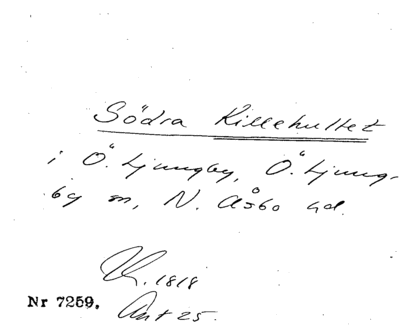 Södra Killehultet
i Ö. Ljungby, Ö. Ljung-
by sn, N. Åsbo hd.
1818
Nr 7259. Ant 25.